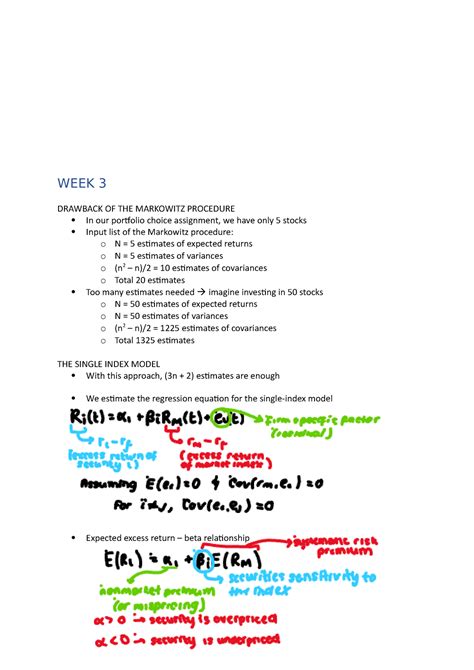 WEEK 3
DRAWBACK OF THE MARKOWITZ PROCEDURE
▪ In our portfolio choice assignment, we have only 5 stocks
▪ Input list of the Markowitz procedure:
o N = 5 estimates of expected returns
o N = 5 estimates of variances
o (n² – n)/2 = 10 estimates of covariances
o Total 20 estimates
▪ Too many estimates needed → imagine investing in 50 stocks
o N = 50 estimates of expected returns
o N = 50 estimates of variances
o (n² – n)/2 = 1225 estimates of covariances
o Total 1325 estimates
THE SINGLE INDEX MODEL
▪ With this approach, (3n + 2) estimates are enough
▪ We estimate the regression equation for the single-index model
Ri(t) = αi + βiRM(t) + ei(t) → Firm specific factor
(residual)
ri - rf rM - rf
(excess return of (excess return
security i) of market index)
Assuming E(ei) = 0 & Cov(rm, ei) = 0
For i≠j, Cov(ei, ej) = 0
▪ Expected excess return – beta relationship
systematic risk
premium
E(Ri) = αi + βiE(RM)
securities sensitivity to
the index
nonmarket premium
(or mispricing)
α > 0 → security is overpriced
α < 0 → security is underpriced